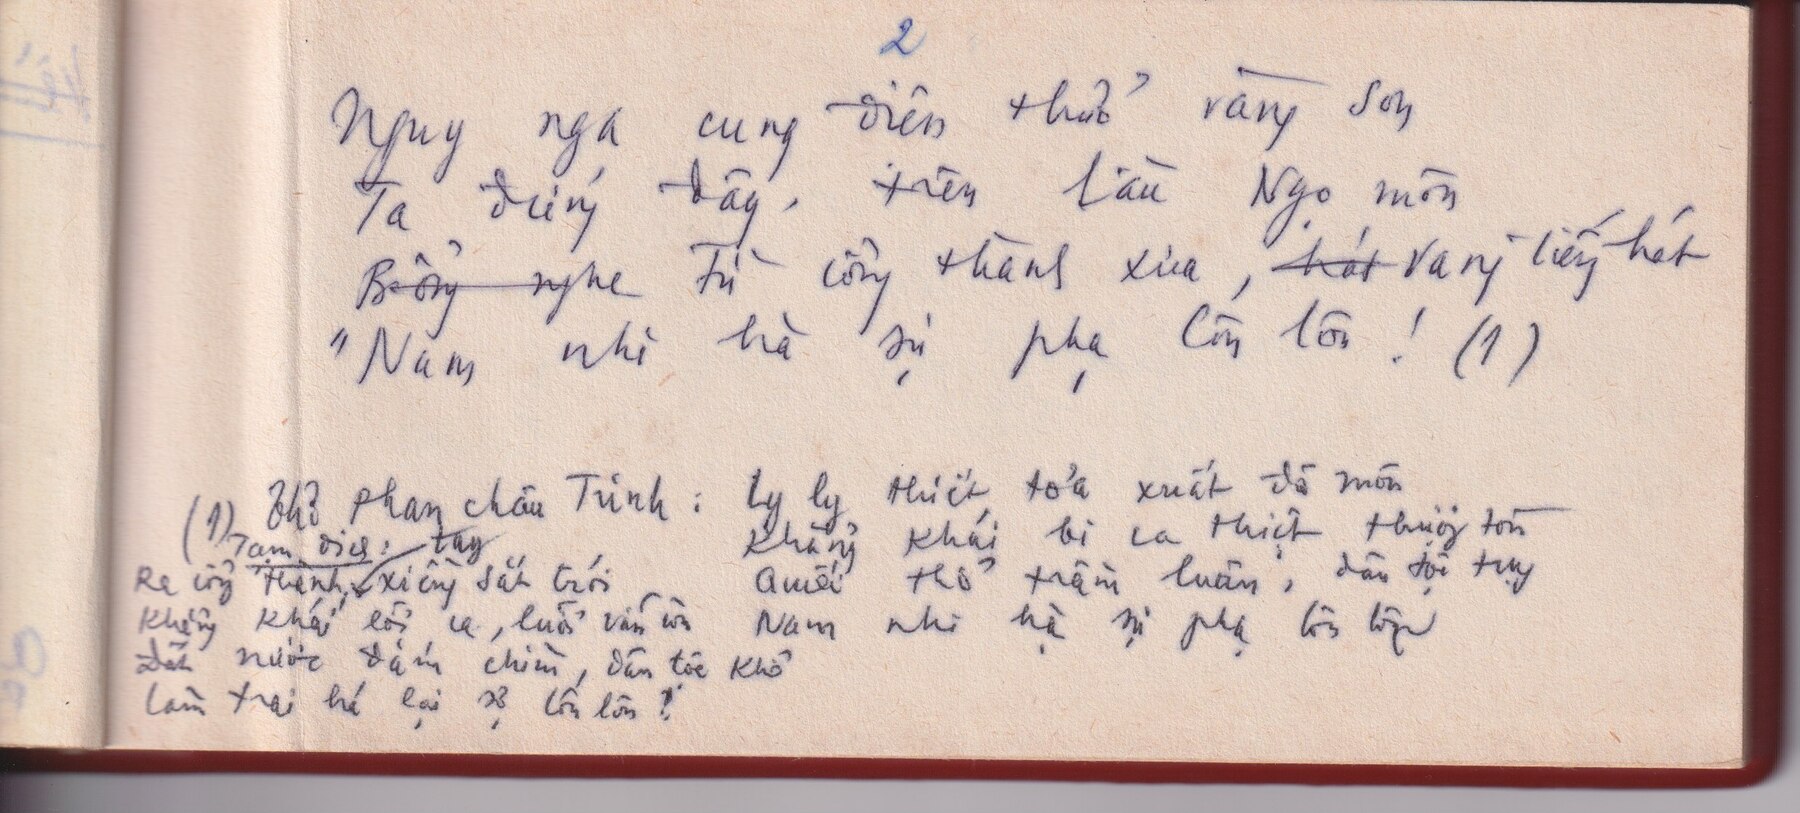 2
Nguy nga cung điện thuở vàng son
Ta đứng đây, trên lầu Ngọ môn
Bỗng nghe Từ cổng thành xưa, hát vang tiếng hát
"Nam nhi hà sự phạ Côn lôn! (1)
(1) Thơ Phan Châu Trinh: Ly ly thiết tỏa xuất đô môn
Khảng khái bi ca thiệt thượng tồn
Quốc thổ trầm luân, dân tộc tụy
Nam nhi hà sự phạ Côn lôn
Tạm dịch: tay
Ra cổng thành, xiềng sắt trói
Khảng khái lời ca, lưỡi vẫn còn
Đất nước đắm chìm, dân tộc khổ
Làm trai há lại sợ Côn lôn!